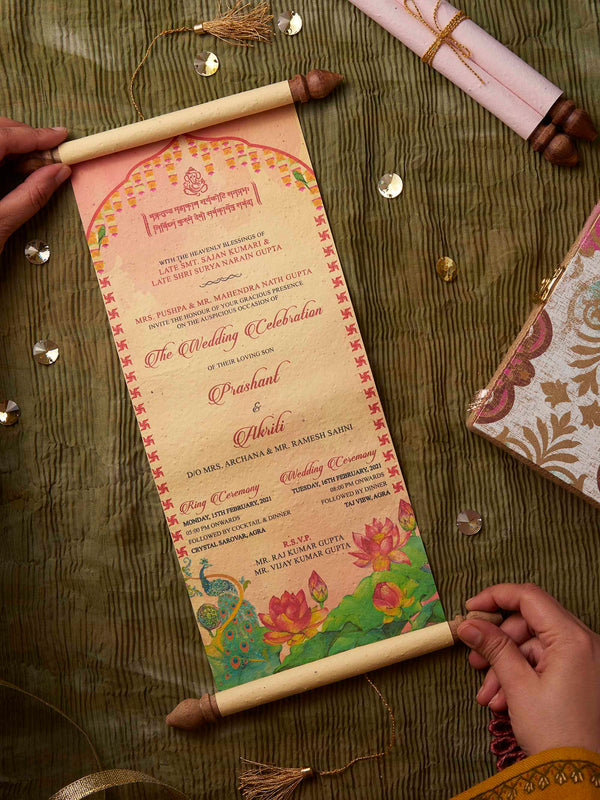 WITH THE HEAVENLY BLESSINGS OF
LATE SMT. SAJAN KUMARI &
LATE SHRI SURYA NARAIN GUPTA
MRS. PUSHPA & MR. MAHENDRA NATH GUPTA
INVITE THE HONOUR OF YOUR GRACIOUS PRESENCE
ON THE AUSPICIOUS OCCASION OF
The Wedding Celebration
OF THEIR LOVING SON
Prashant
&
Akriti
D/O MRS. ARCHANA & MR. RAMESH SAHNI
Ring Ceremony
MONDAY, 15TH FEBRUARY, 2021
05:00 PM ONWARDS
FOLLOWED BY COCKTAIL & DINNER
CRYSTAL SAROVAR, AGRA
Wedding Ceremony
TUESDAY, 16TH FEBRUARY, 2021
08:00 PM ONWARDS
FOLLOWED BY DINNER
TAJ VIEW, AGRA
R.S.V.P.
MR. RAJ KUMAR GUPTA
MR. VIJAY KUMAR GUPTA